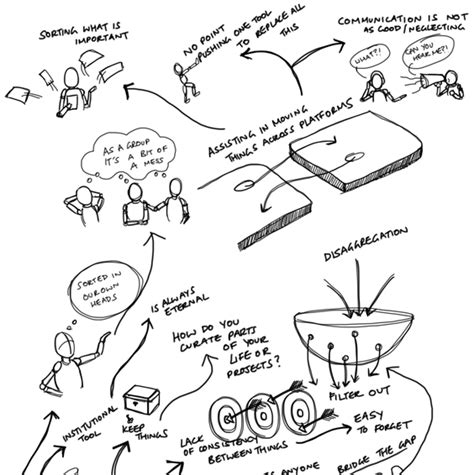 SORTING WHAT IS
IMPORTANT
NO POINT
PUSHING ONE TOOL
TO REPLACE ALL
THIS
COMMUNICATION IS NOT
AS GOOD/NEGLECTING
WHAT?!
CAN YOU
HEAR ME?!
AS A GROUP
IT'S A BIT OF
A MESS
ASSISTING IN MOVING
THINGS ACROSS PLATFORMS
DISAGGREGATION
SORTED IN
OUR OWN
HEADS
IS ALWAYS
ETERNAL
HOW DO YOU
CURATE PARTS
OF YOUR
LIFE OR
PROJECTS?
FILTER OUT
INSTITUTIONAL
TOOL
&
KEEP
THINGS
LACK
OF CONSISTENCY
BETWEEN THINGS
EASY
TO FORGET
IS ANYONE
BRIDGE THE GAP